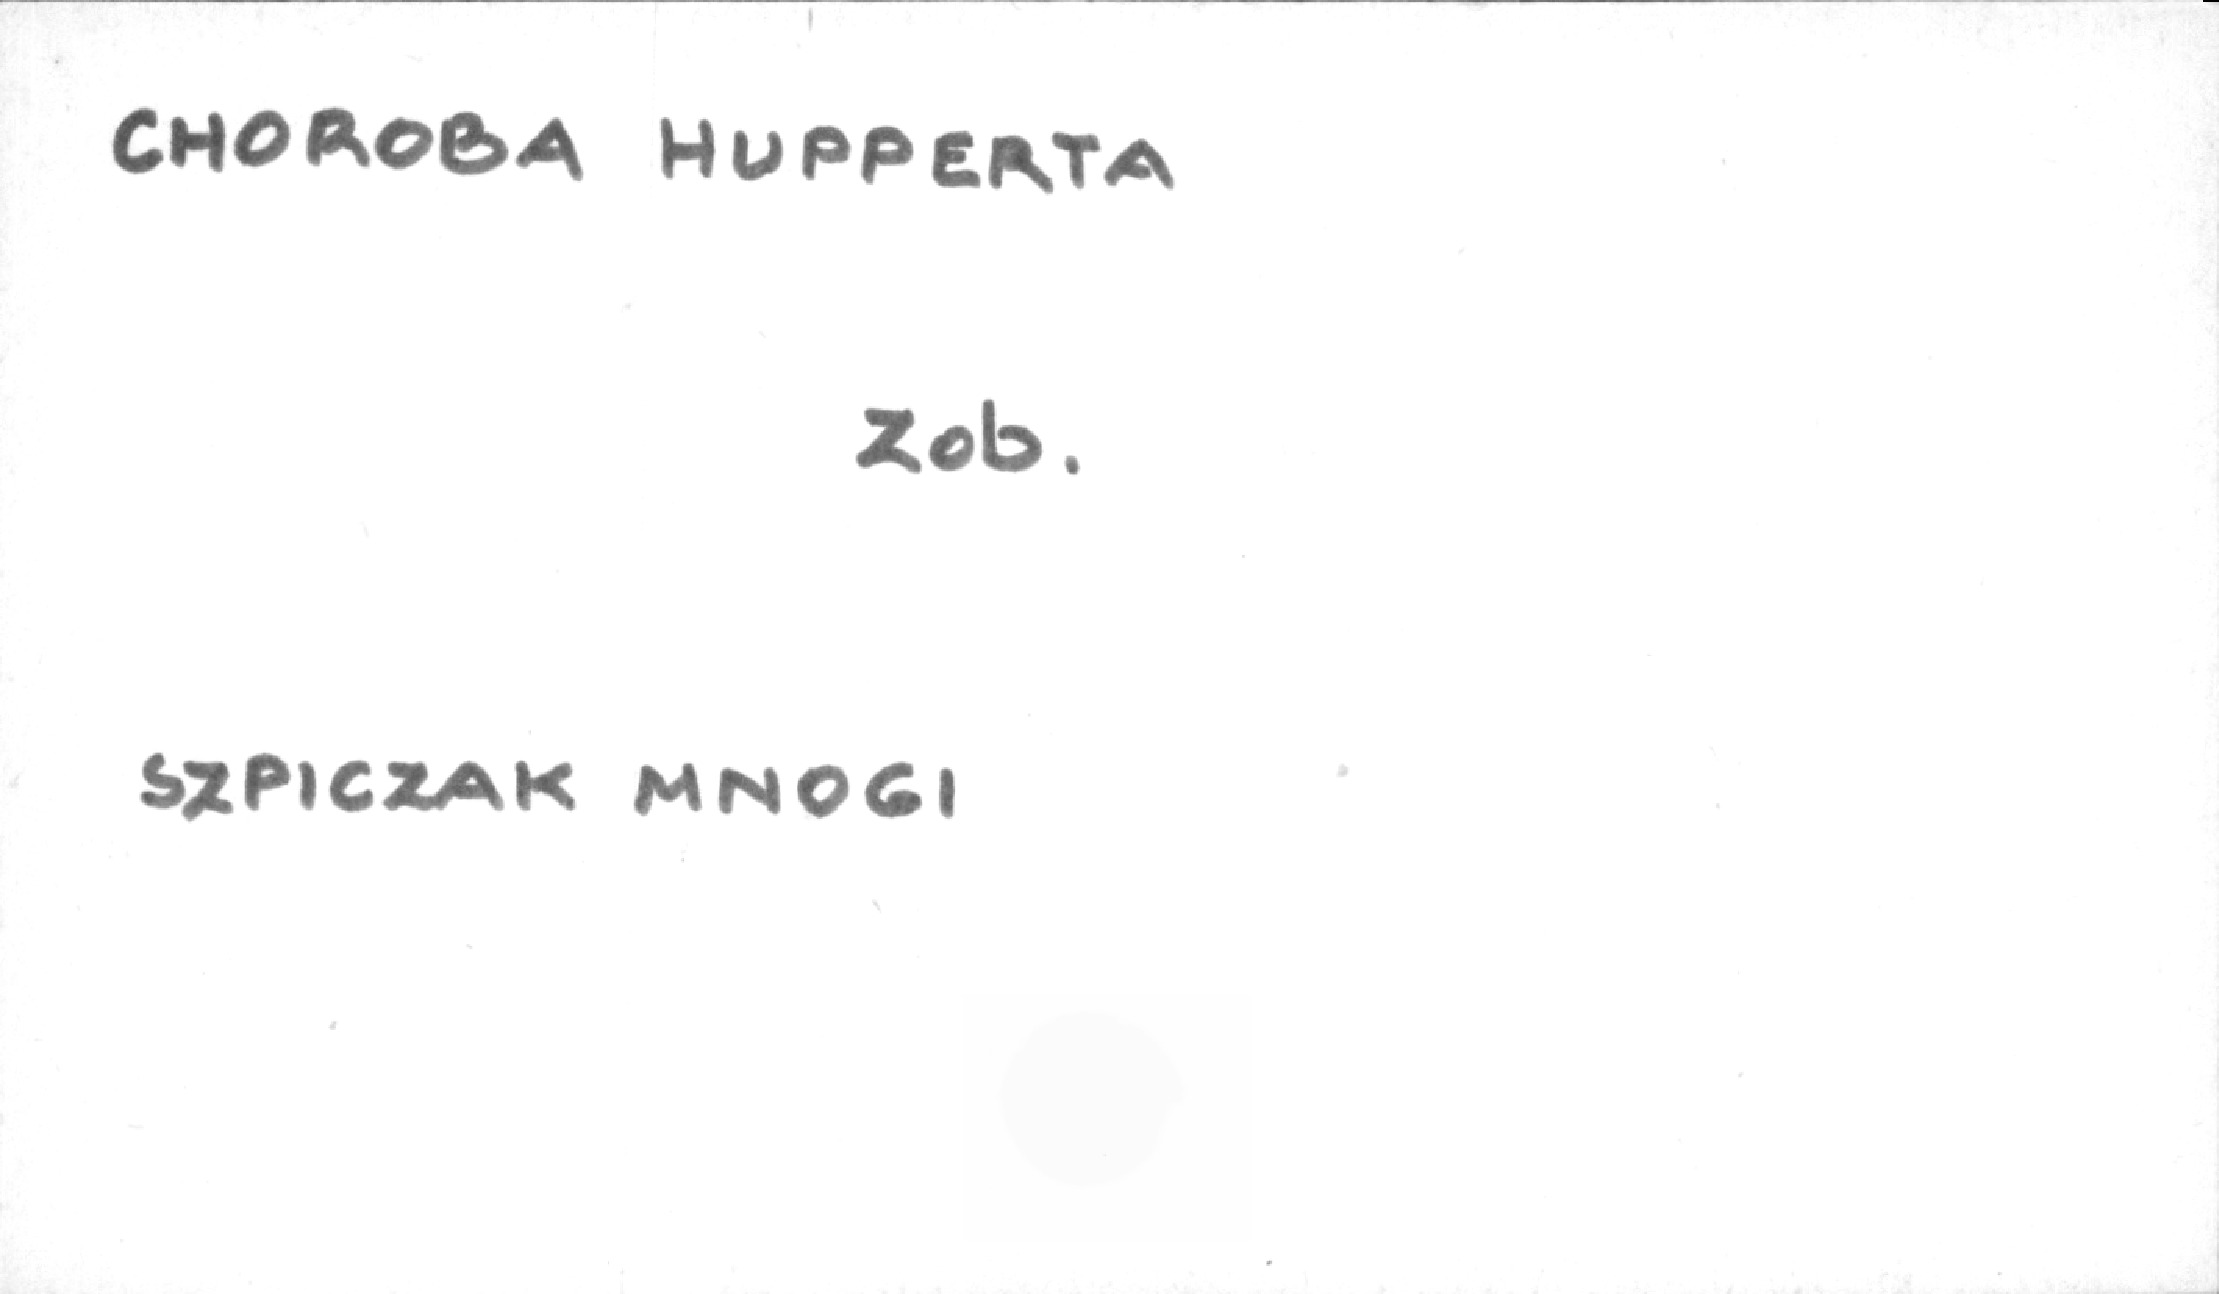 CHOROBA HUPPERTA
Zob.
SZPICZAK MNOGI